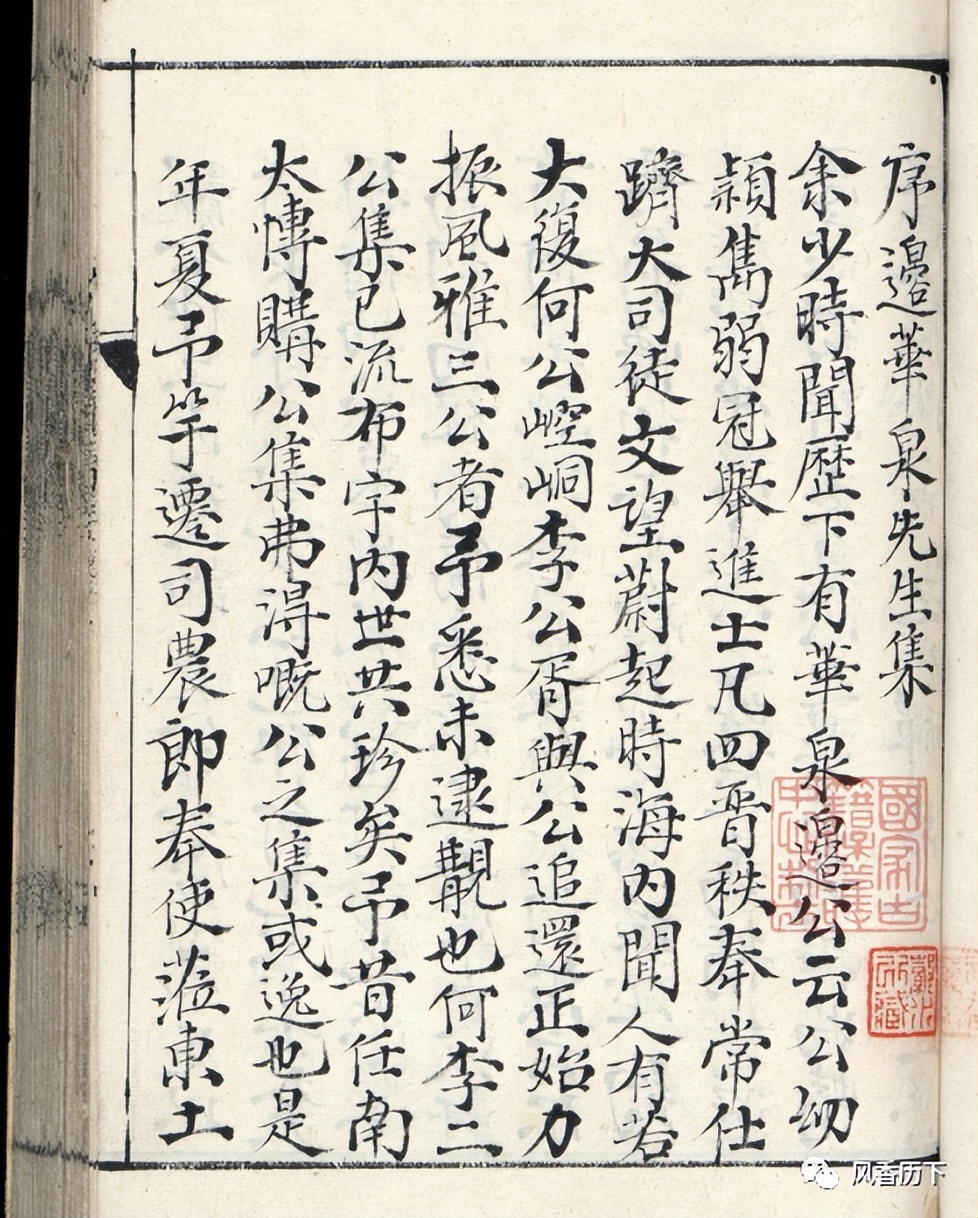 序邊華泉先生集
余少時聞歷下有華泉邊公云公幼
穎雋弱冠舉進士凡四晋秩奉常仕
躋大司徒文望蔚起時海内聞人有若
大復何公崆峒李公胥與公追還正始力
振風雅三公者予悉未逮覩也何李二
公集已流布宇内世共珍矣予昔任南
太愽購公集弗淂嘅公之集或逸也是
年夏予竽遷司農郎奉使蒞東土
國家古
籍整理
所藏
风香历下